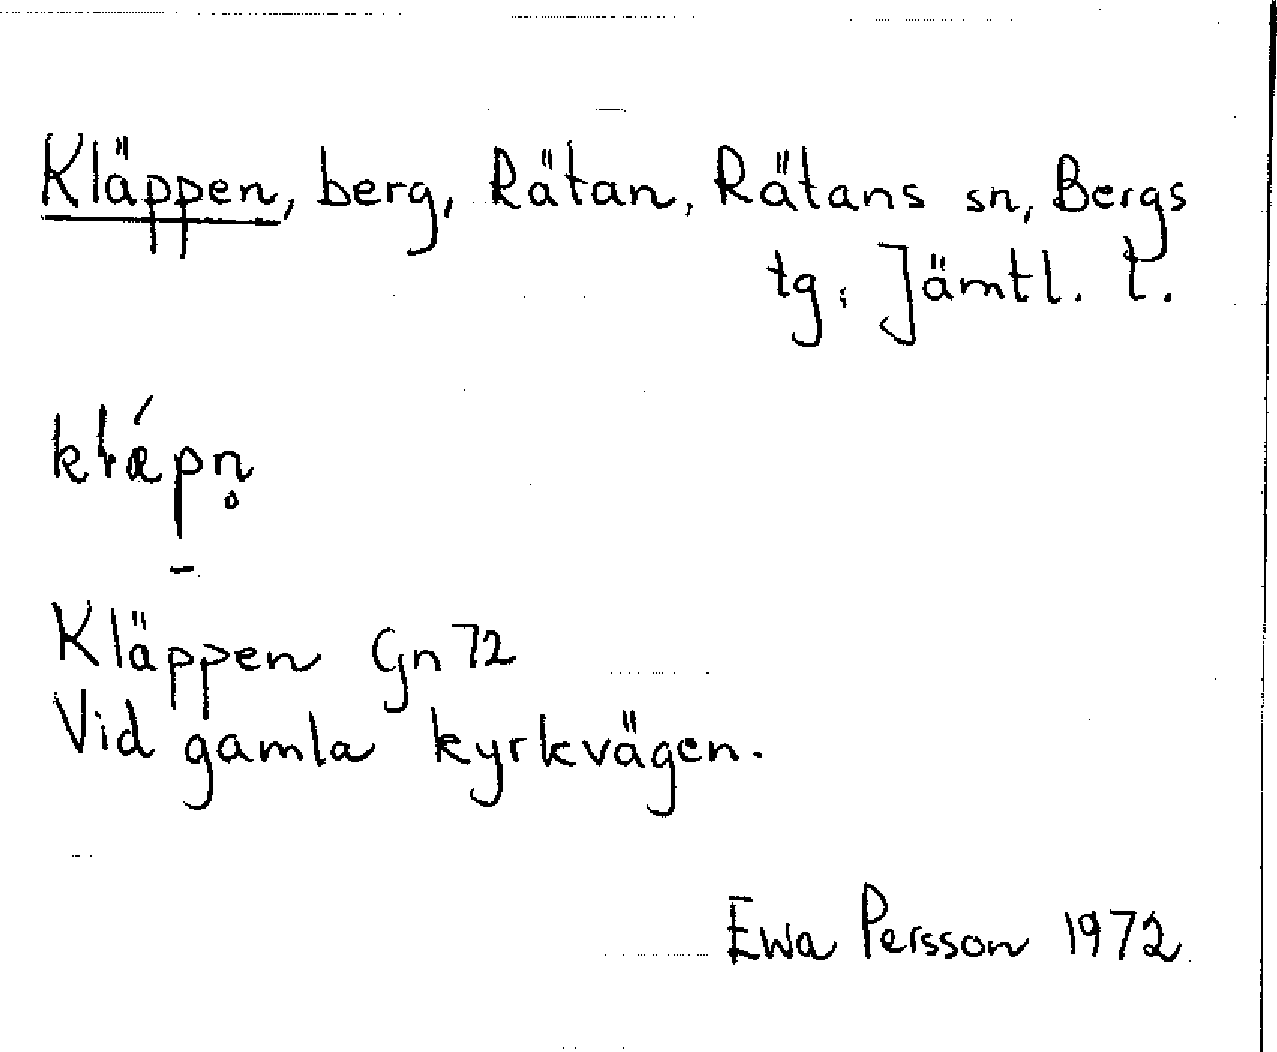 Kläppen, berg, Rätan, Rätans sn, Bergs
tg, Jämtl. l.
kłǽpn̥
Kläppen Gn 72
Vid gamla kyrkvägen.
Ewa Persson 1972